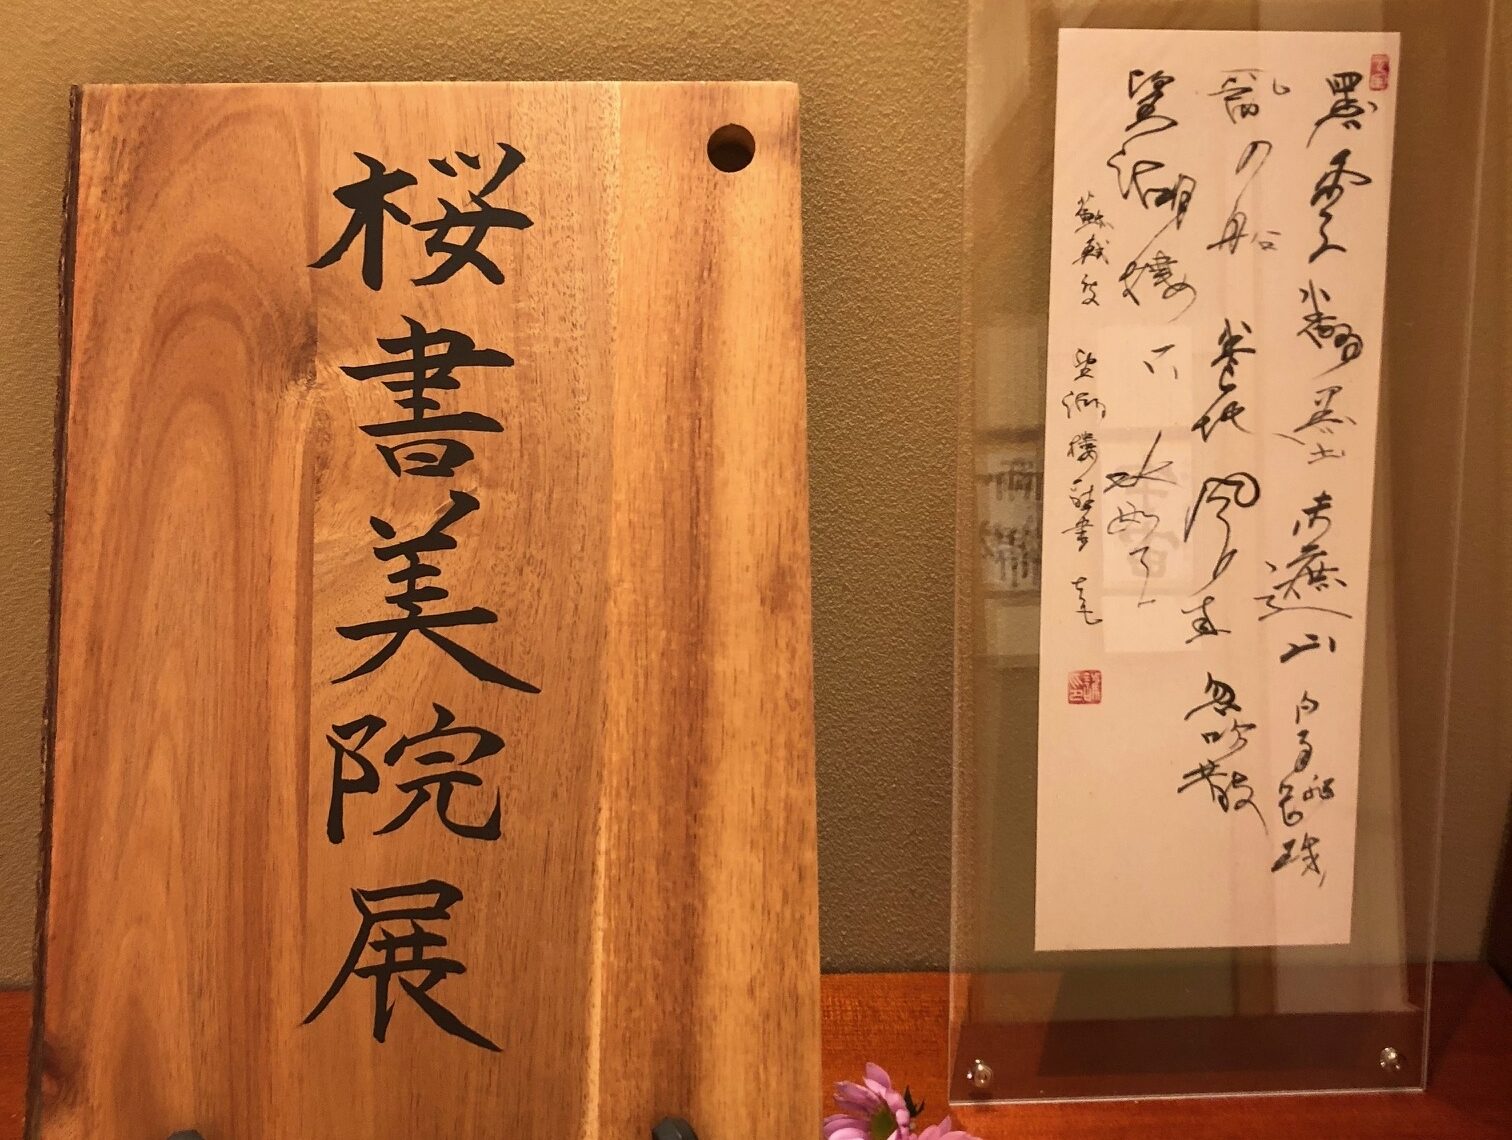 桜書美院展
黒雲翻墨未遮山白雨跳珠
亂入船巻地風来忽吹散
望湖樓下水如天
蘇軾 望湖樓酔書